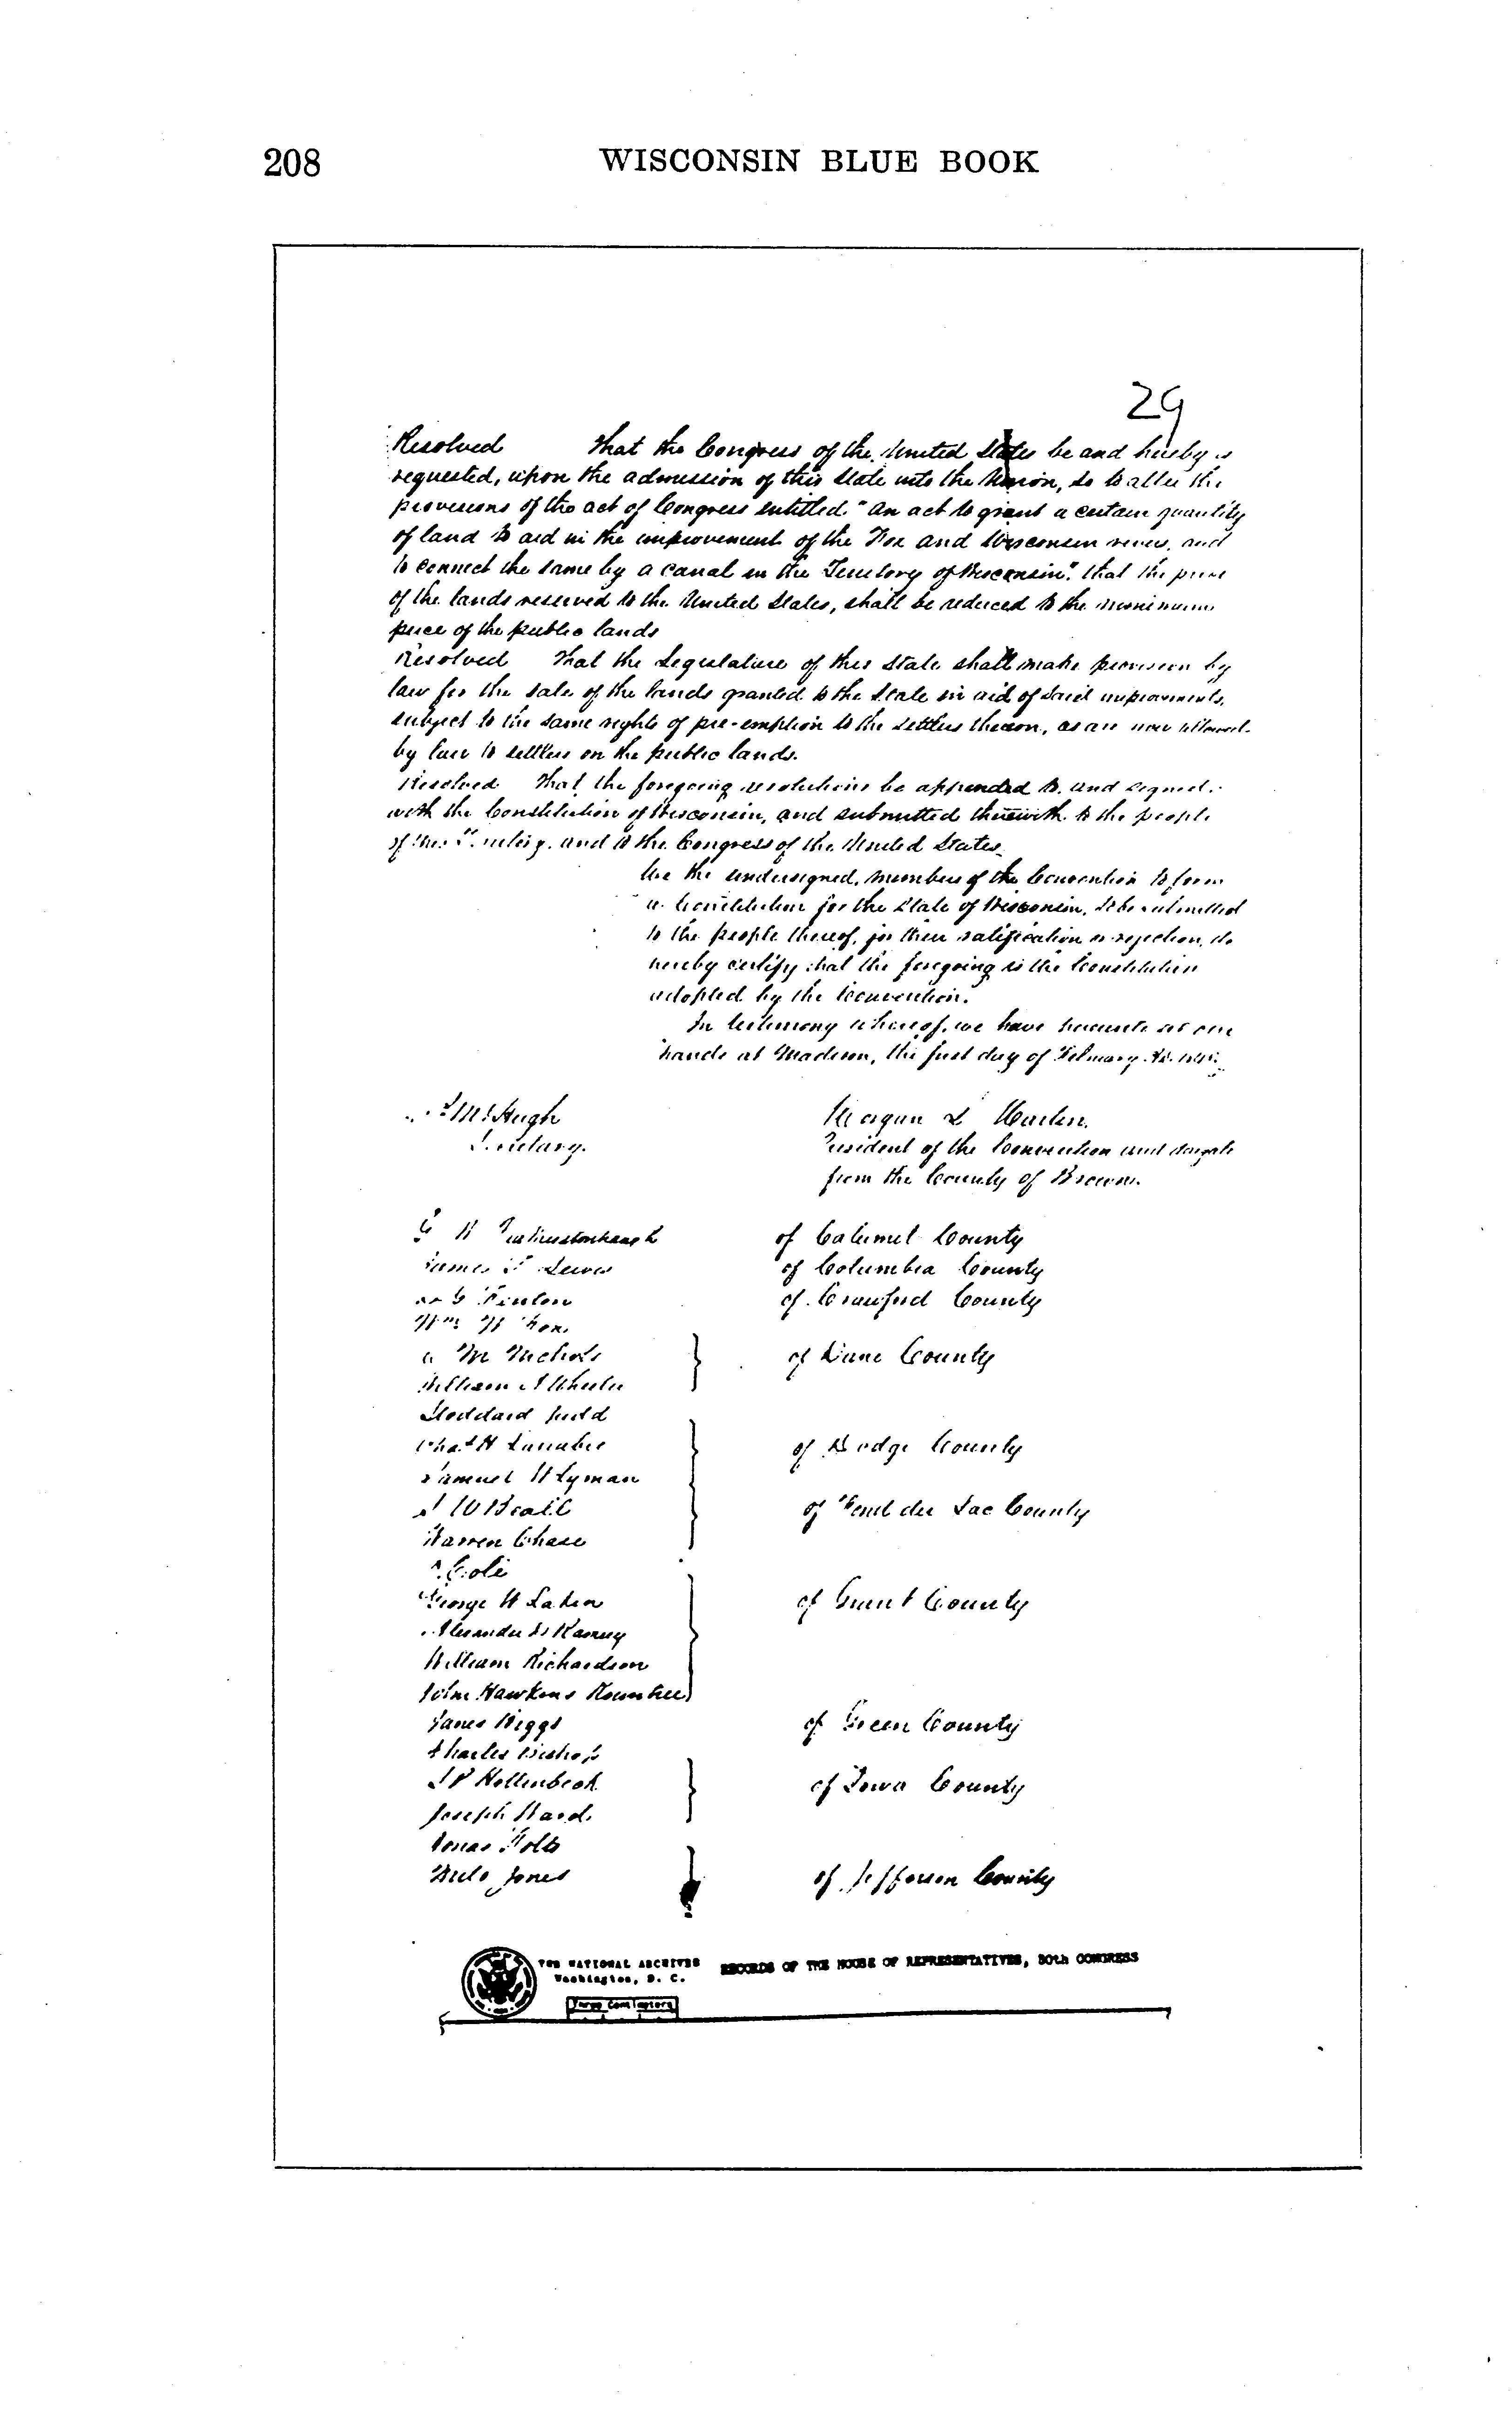 208 WISCONSIN BLUE BOOK
29
Resolved That the Congress of the United States be and hereby is
requested, upon the admission of this State into the Union, so to alter the
provisions of the act of Congress entitled "An act to grant a certain quantity
of land to aid in the improvement of the Fox and Wisconsin rivers, and
to connect the same by a canal in the Territory of Wisconsin", that the price
of the lands reserved to the United States, shall be reduced to the minimum
price of the public lands
Resolved That the Legislature of this State shall make provision by
law for the sale of the lands granted to the State in aid of said improvements,
subject to the same rights of pre-emption to the settlers thereon, as are now allowed
by law to settlers on the public lands.
Resolved That the foregoing resolutions be appended to, and signed
with the Constitution of Wisconsin, and submitted therewith to the people
of this Territory, and to the Congress of the United States.
We the undersigned, members of the Convention to form
a Constitution for the State of Wisconsin, to be submitted
to the people thereof, for their ratification or rejection, do
hereby certify that the foregoing is the Constitution
adopted by the Convention.
In testimony whereof, we have hereunto set our
hands at Madison, the first day of February A.D.
McHugh
Secretary.
Morgan L Martin.
President of the Convention and delegate
from the County of Brown.
of Calumet County
James T Lewis of Columbia County
of Crawford County
Wm H Fox.
M Nichols of Dane County
William A Wheeler
Stoddard Judd
Chas H Larrabee of Dodge County
Samuel W Lyman
S W Beall of Fond du Lac County
Warren Chase
Cole
George W Lakin of Grant County
Alexander D Ramsey
William Richardson
John Hawkins Rountree
James Biggs of Green County
Charles Bishop
S P Hollenbeck of Iowa County
Joseph Ward.
Jonas Folts
Milo Jones of Jefferson County
THE NATIONAL ARCHIVES
Washington, D. C.
RECORDS OF THE HOUSE OF REPRESENTATIVES, 30th CONGRESS